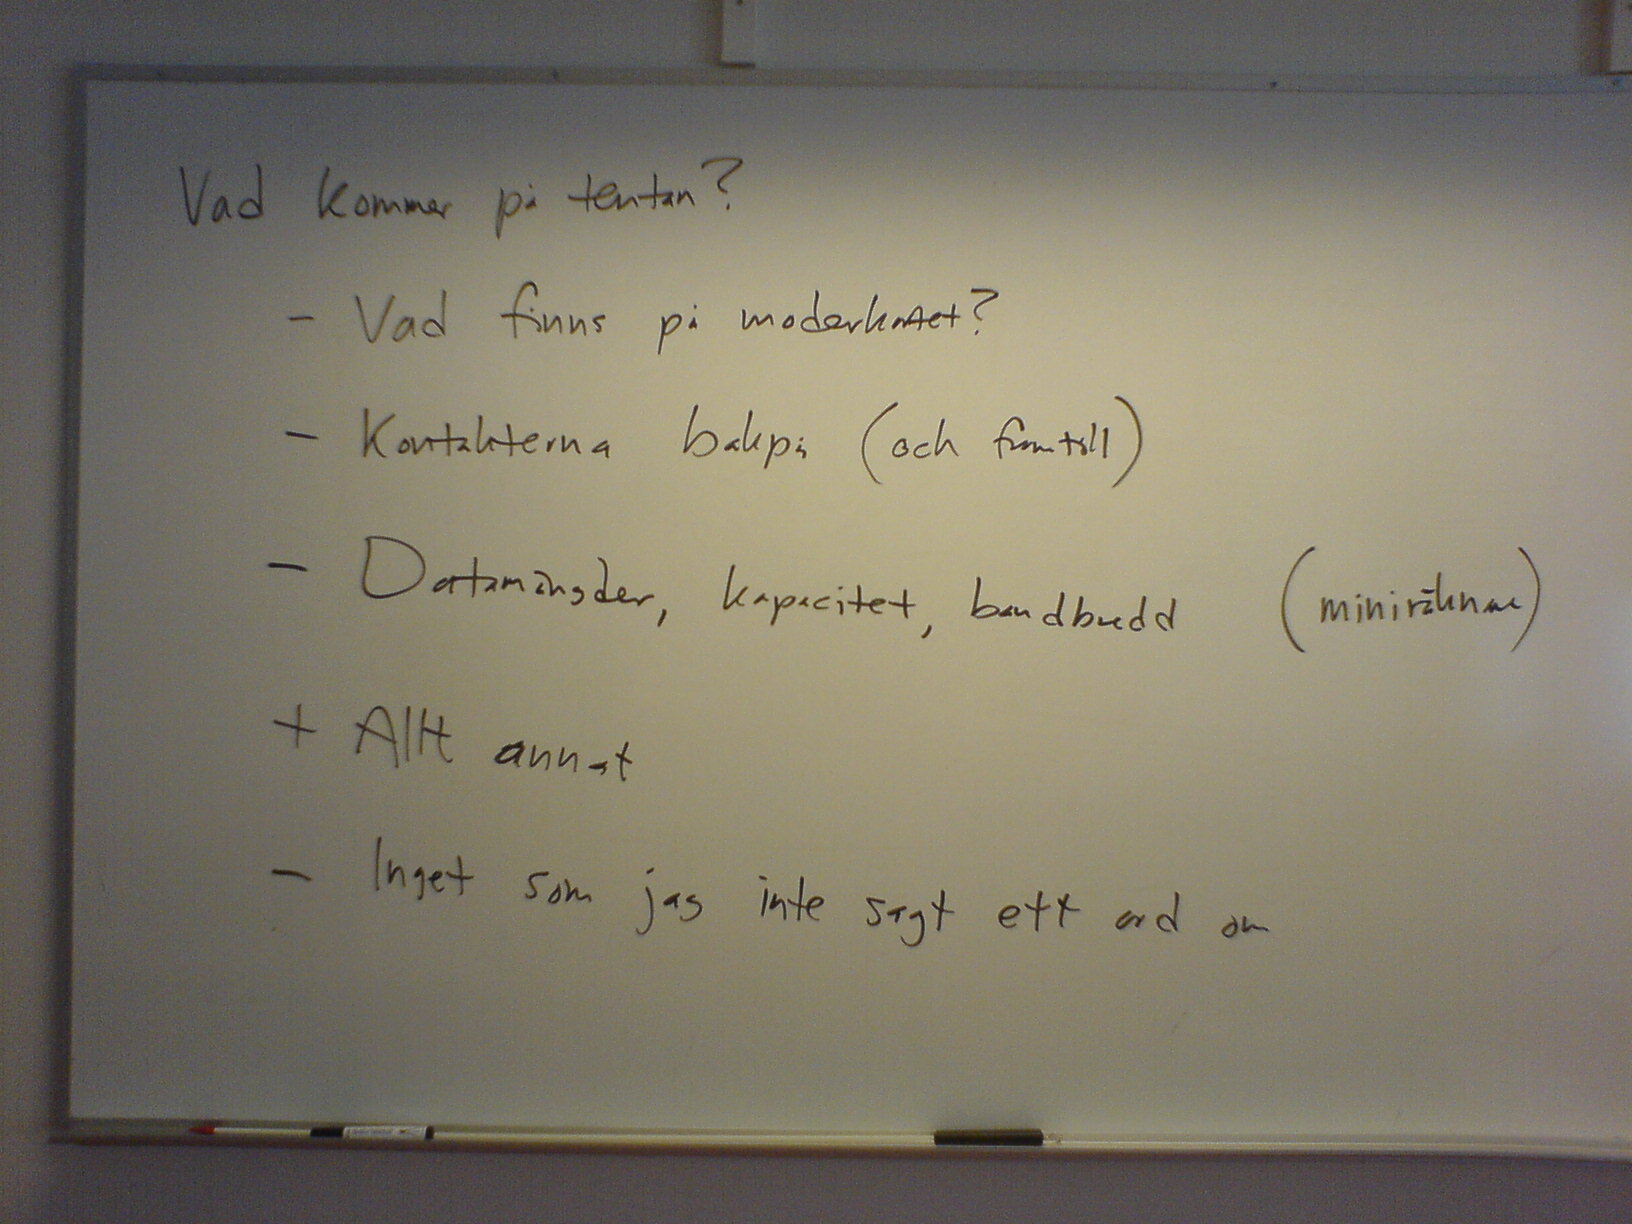 Vad kommer på tentan?
- Vad finns på moderkortet?
- Kontakterna bakpå (och framtill)
- Datamängder, kapacitet, bandbredd (miniräknare)
+ Allt annat
- Inget som jag inte sagt ett ord om